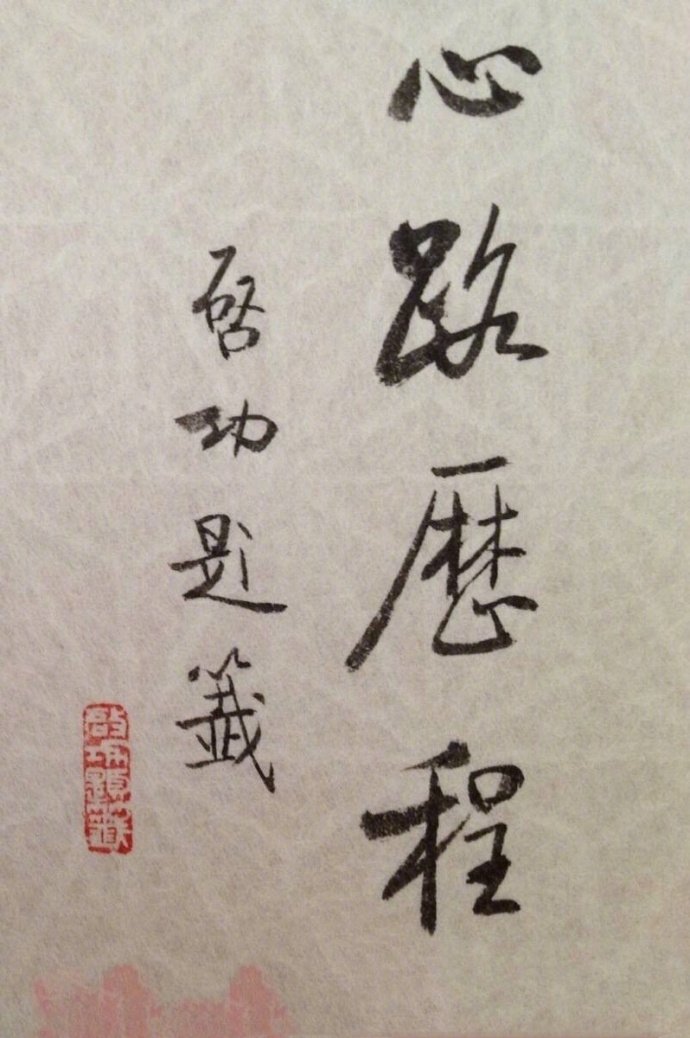 心路歷程
启功題籤
啟功題籤